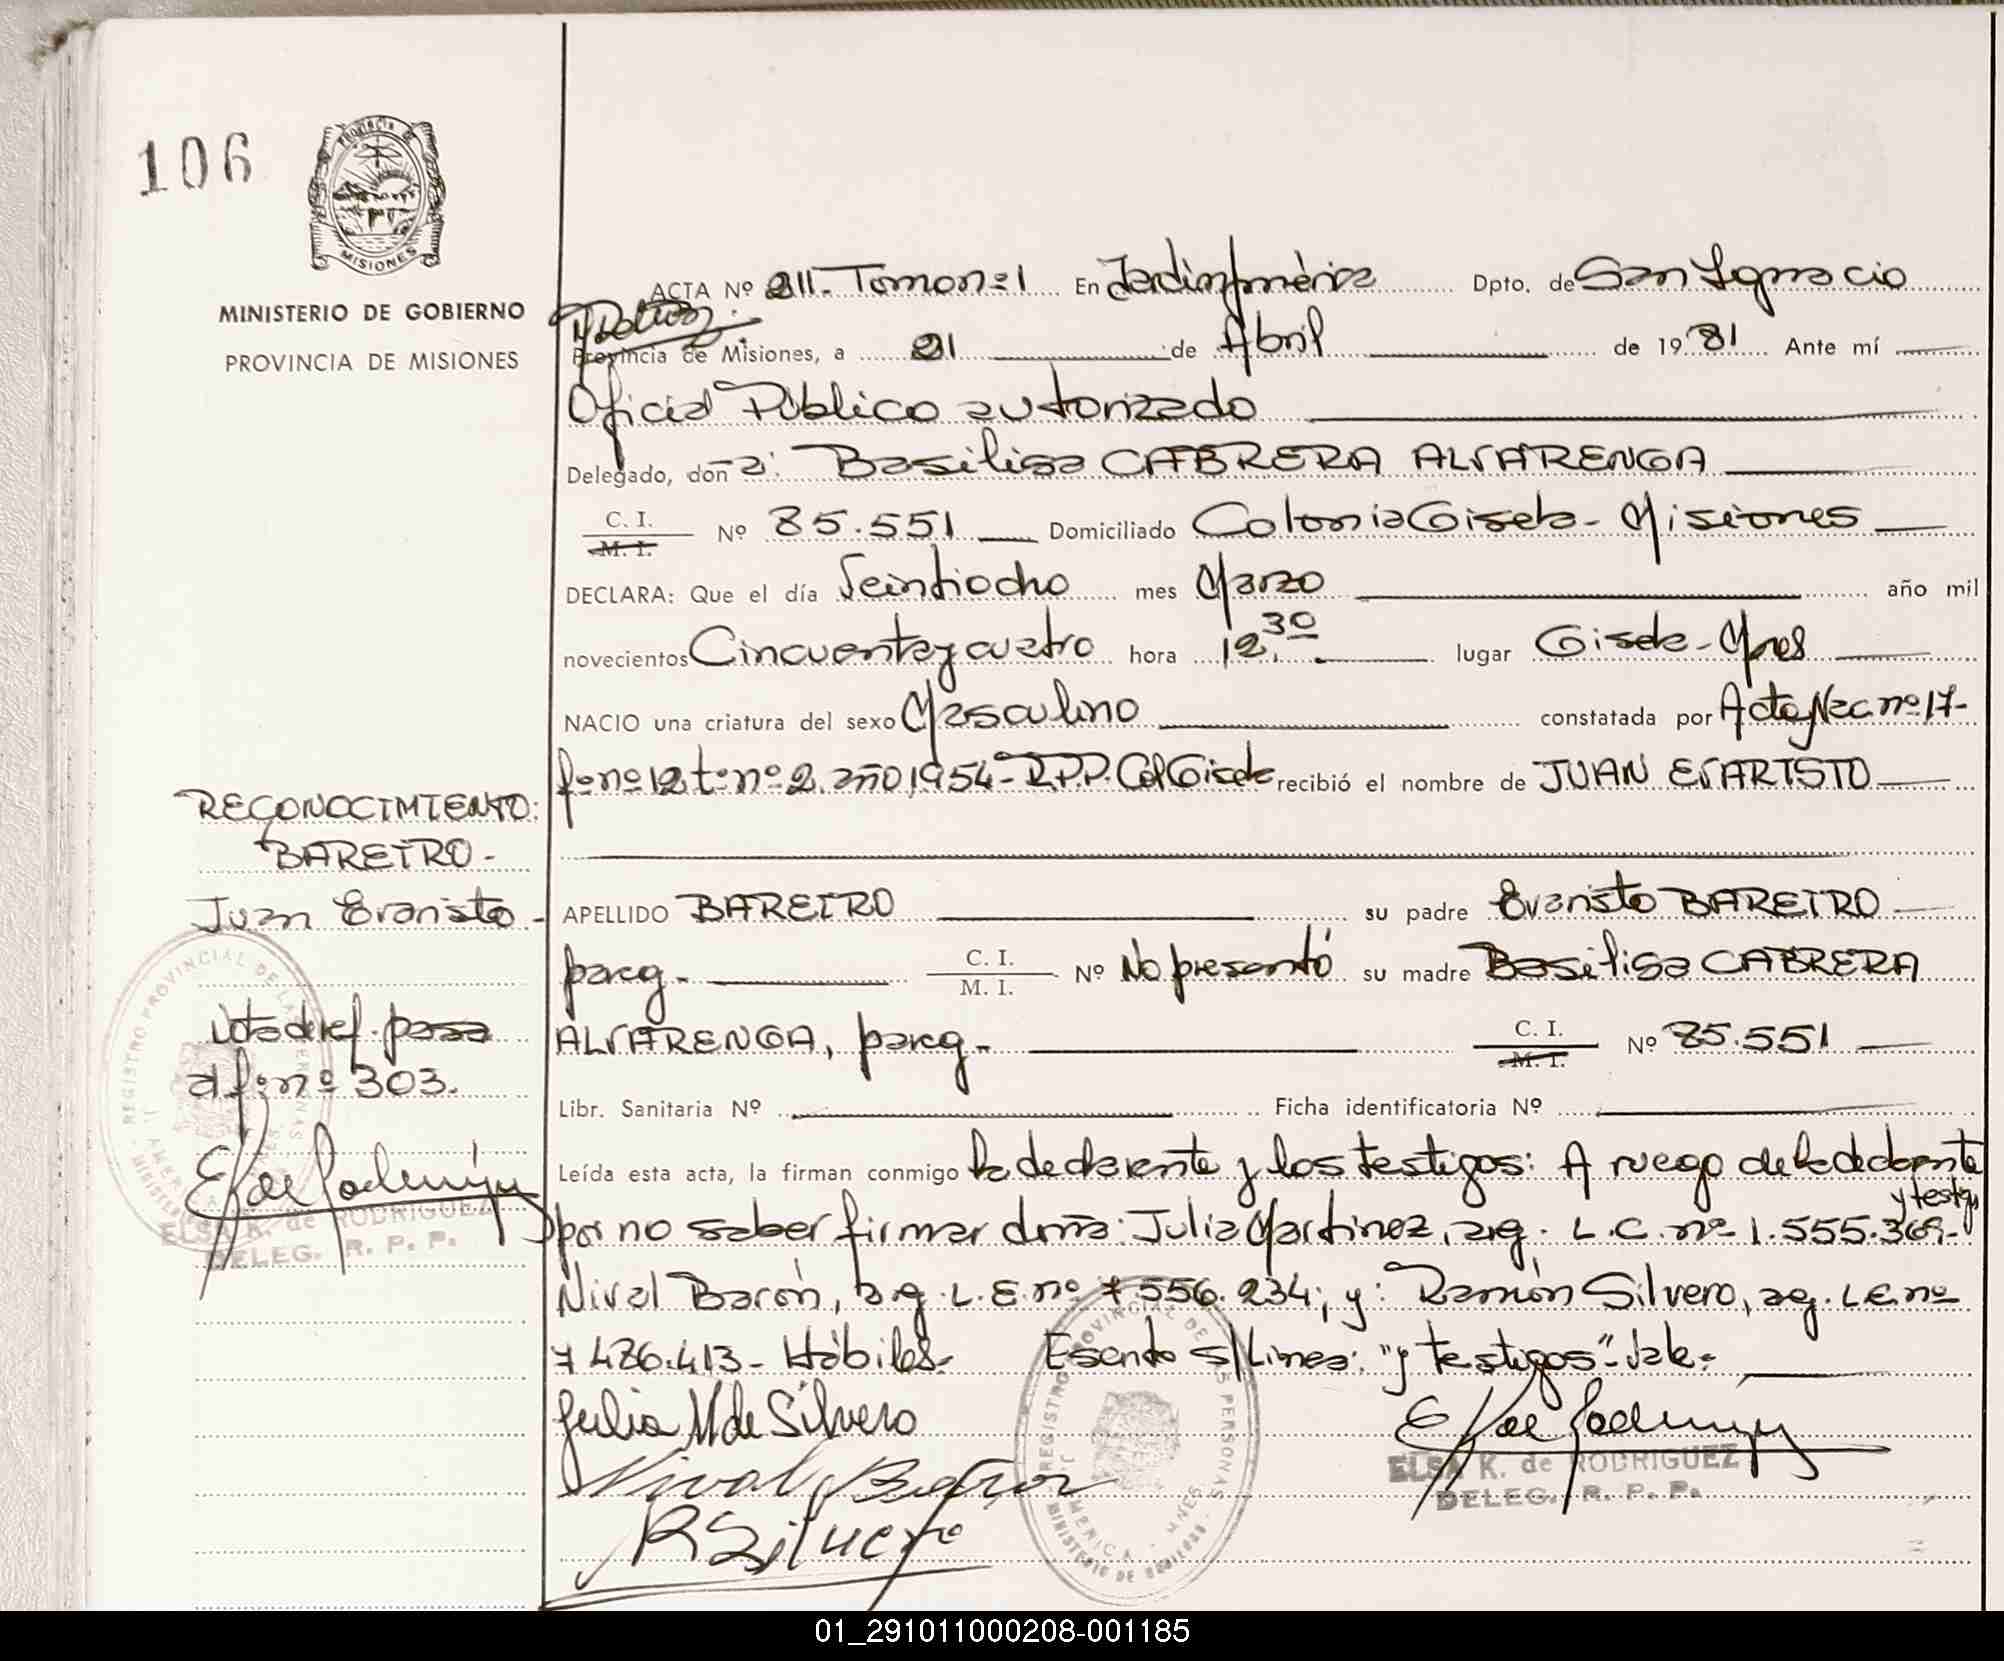 106
PROVINCIA DE
MISIONES
MINISTERIO DE GOBIERNO
PROVINCIA DE MISIONES
ACTA Nº 211. Tomo nº 1 En Jardin América Dpto. de San Ignacio
Provincia de Misiones, a 21 de Abril de 1981 Ante mí
Oficial Público autorizado
Delegado, don -a: Basilisa CABRERA ALVARENGA
C. I.
M. I. Nº 85.551 Domiciliado Colonia Gisela - Misiones
DECLARA: Que el día Veintiocho mes Marzo año mil
novecientos Cincuenta y cuatro hora 12,30 lugar Gisela - Mnes
NACIO una criatura del sexo Masculino constatada por Acta Nac nº 17-
fº nº 12 tº nº 2. año 1954 - R.P.P. Col Gisela recibió el nombre de JUAN EVARISTO
RECONOCIMIENTO:
BAREIRO -
Juan Evaristo -
APELLIDO BAREIRO su padre Evaristo BAREIRO
parag - C. I.
M. I. Nº No presentó su madre Basilisa CABRERA
ALVARENGA, parag - C. I.
M. I. Nº 85.551
nota de ref. pasa
al fº nº 303.
Libr. Sanitaria Nº Ficha identificatoria Nº
Leída esta acta, la firman conmigo la declarente y los testigos: A ruego de la declarente
y testigos
por no saber firmar doña: Julia Martinez, arg. L.C. nº 1.555.369-
Nival Barón, arg. L.E. nº 7556.234; y: Ramón Silvero, arg. L.E. nº
7 486.413 - Hábiles - Escrito s/Linea: "y testigos" - Vale -
Julia M de Silvero
R Silvero
ELSA K. de RODRIGUEZ
DELEG. R. P. P.
ELSA K. de RODRIGUEZ
DELEG. R. P. P.
REGISTRO PROVINCIAL DE LAS PERSONAS
REGISTRO PROVINCIAL DE LAS PERSONAS
MINISTERIO DE GOBIERNO
01_291011000208-001185